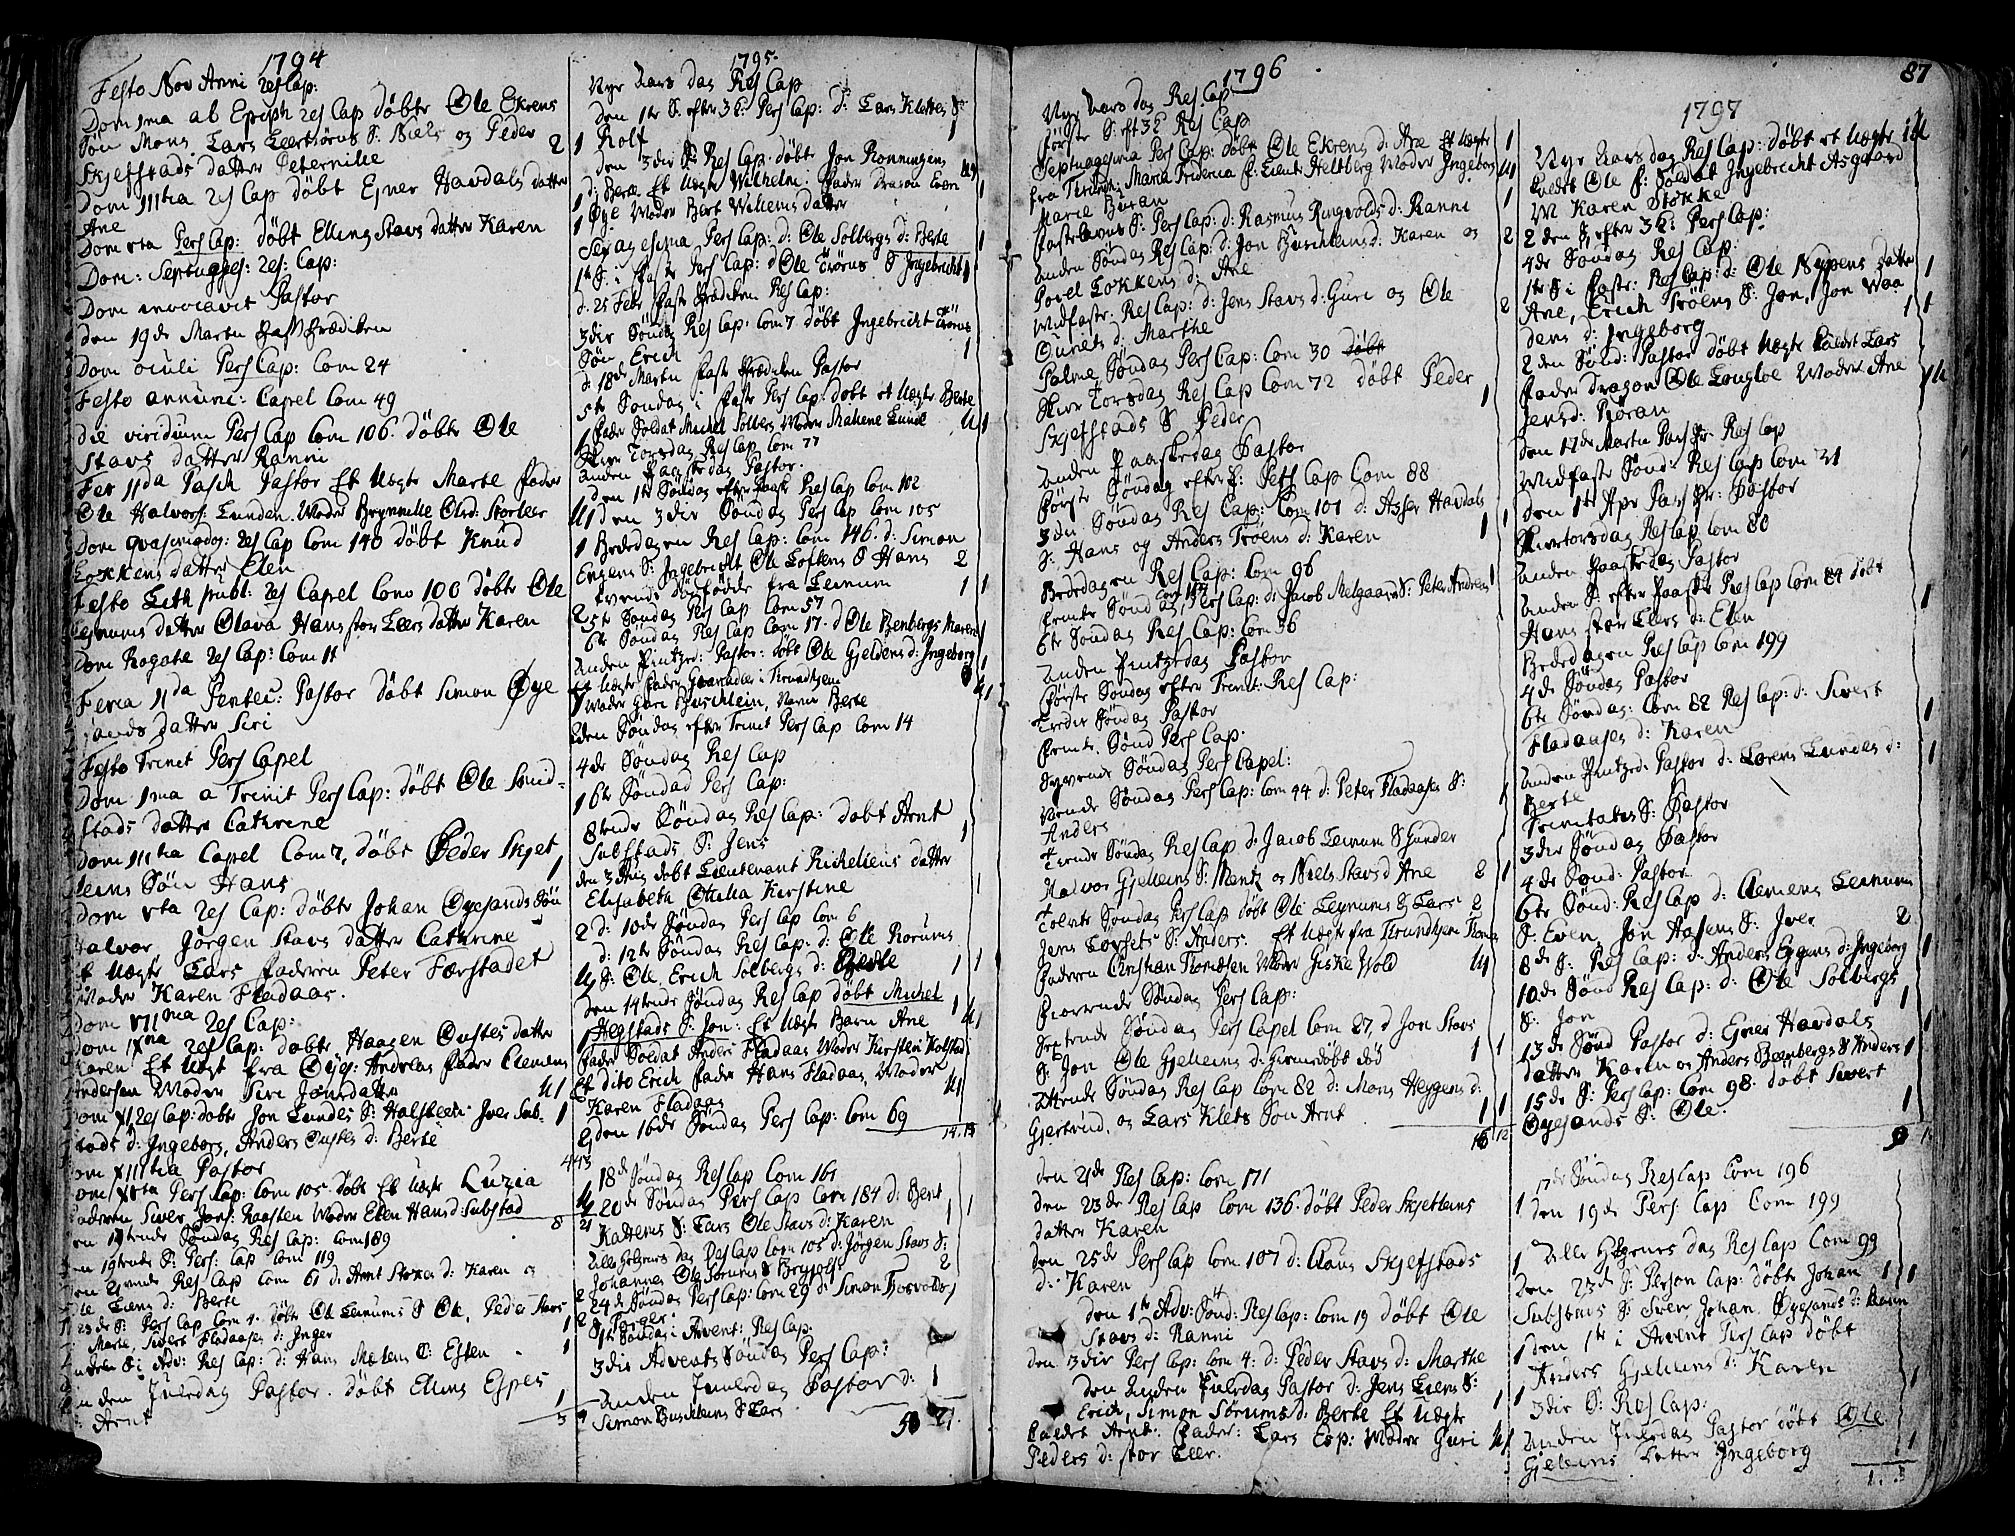 1794
Festo Nov Anni Res Cap:
Dom 1ma ab Epiph Res Cap döbte Ole Ekrens
Sön Mons Lars Leertrörns S: Niels og Peder 2
Skjefstads datter Peternille
Dom IIItia Res Cap döbt Ejner Havdals datter
Ane
Dom vta Pers Cap: döbt Elling Stavs datter Karen
Dom: Septuages: Res: Cap:
Dom invocavit Pastor
Den 19de Martii Fast Prædiken
Dom oculi Pers Cap: Com 24
Festo annunc: Capel Com 49
Die viridium Pers Cap Com 106. döbte Ole
Stavs datter Ranni
Fer IIda Pasch Pastor Et Uægte Marte fader
Ole Halvors: Lunden. Moder Brynnille Olsd: Storleer
Dom qvasimodog: Res Cap Com 140 döbt Knud
Løkkens datter Elen
Festo Lith publ: Res Capel Com 100 döbte Ole
Leinums datter Olava Hans stor Leers datter Karen
Dom Rogate Res Cap: Com 11
Feria IIda Pentec: Pastor döbt Simon Øye
sands datter Siri
Festo Trinit Pers Capel
Dom 1ma a Trinit Pers Cap: döbt Ole Sund-
stads datter Cathrine
Dom IIItia Capel Com 7, döbt Peder Skjet
leins Sön Hans 1
Dom vta Res Cap: döbte Johan Øyesands Sön
Halvor Jörgen Stavs datter Cathrine
Et Uægte Lars faderen Peter Færstadet
Moder Karen Fladaas.
Dom VIIma Res Cap:
Dom IXna Res Cap: döbte Haagen Oustes datter
Karen Et Uægt fra Øye: Andreas fader Clemen
Andersen Moder Siri Jonsdatter U1
Dom XI Res Cap: döbte Jon Lundes S: Halsteen Iver Sub- 1
stads d: Ingeborg, Anders Oustes d: Berte
Dom XIIItia Pastor
Pers Cap: Com 105 döbt Et Uægte Luzia
Faderen Siver Jons: Raasten Moder Elen Hansd: Substad 8
den 17tende Söndag Res Cap: Com 189
den 19tende S: Pers: Cap Com 119
den 21 ende Res Cap Com 61 d: Arnt Stokes d: Karen og
Ole Liens d: Berte
23de S: Pers Cap Com 4. döbte Ole Leinums S Ole, Peder Stavs
Marte, Sivert Fladaases d: Inger 1
Anden S: i Adv: Res Cap: d: Hans Mælens S: Esten 1
Anden Juledag Pastor. döbt Elling Espes
S: Arnt 1
1795.
Nye Aars dag Res Cap
Den 1te S: efter 3K: Pers Cap: d: Lars Klættes S
Rolf 1
den 3die S: Res Cap: döbte Jon Ronningens
d: Beret Et Uægte Wilhelm: Fader Dragon Even U1
Øye Moder Beret Willumsdatter
Sexagesima Pers Cap: d: Ole Solbergs d: Berte 1
1te S: i Faste Pers Cap: d Ole Trörns S Ingebricht 1
d. 25 Febr Faste Prædiken Res Cap:
3die Söndag Res Cap: Com 7 döbt Ingebricht Trörns
Sön Erich 1
d: 18de Martii Faste Prædiken Pastor
5te Söndag i Faste Pers Cap: döbt et Uægte Berte
Fader Soldat Michel Solberg Moder Malene Lunde U1
Skier Torsdag Res Cap Com 77
Anden Paaskedag Pastor.
Den 1te Söndag efter Paaske Res Cap Com 102
den 3die Söndag Pers Cap Com 105
Bededagen Res Cap: Com 146. d: Simon
Engens S: Ingebricht Ole Loftens S Hans 2
tvende Dödfödde fra Leinum
5te Söndag Pers Cap Com 57 1
6te Söndag Res Cap Com 17. d Ole Benbergs Maren
Anden Pintzed: Pastor: döbt Ole Gjeldens d: Ingeborg
Et Uægte Fader i Trundhjem
Moder Guri Buschlein, Navn Berte
2den Söndag efter Trinit Pers Cap Com 14
4de Söndag Res Cap
6te Söndag Pers Cap:
8tende Söndag Res Cap: döbt Arnt
Substads S: Jens 1
den 3 Aug döbt Lieutenant Richelieus datter
Elisabeth Otilia Kirstine
d: 10de Söndag Pers Cap Com 6
d: 12te Söndag Res Cap: d: Ole Rorums
S: Ole, Erich Solbergs d: Berte 1
Den 14tende Söndag Res Cap döbt Michel
Hegstads S: Jon: Et Uægte Barn Ane
Fader Soldat Anders Fladaas Moder Kirsten Kolstad
Et dito Erich Fader Hans Fladaas, Moder
Karen Fladaas U1
den 16de Söndag Pers Cap: Com 69
18de Söndag Res Cap Com 161
20de Söndag Pers Cap Com 184 d: Bent
Kattems S: Lars Ole Stavs d: Karen 1
Alle Helgenes dag Res Cap Com 105 d: Jörgen Stavs S:
Johannes Ole Sorums S Brynolf 2
24de Söndag Pers Cap: Com 29 d: Simon Torvolds
S Torger.
1te Söndag i Advent: Res Cap:
3die Advents Söndag Pers Cap:
Anden Juledag Pastor d: 1
Simon Buschleins S Lars
1796
Nye Aars dag Res Cap
Förste S: eft 3K Res Cap
Septuagesima Pers Cap: döbt Ole Ekrens d: Ane Et Uægte 1
fra Trundh: Maria Friderica f: Lieut: Heltberg Moder Ingeborg U1
Marie Büran
Fastelavns S: Pers Cap: d: Rasmus Ringvolds d: Ranni 1
Anden Söndag Res Cap: d: Jon Buschleins d: Karen og 2
Povel Lökkens d: Ane
Midfaste: Res Cap: d: Jens Stavs d: Guri og Ole 2
Ourets d: Marthe
Palme Söndag Pers Cap: Com 30 döbt
Skier Torsdag Res Cap Com 72 döbt Peder
Skjefstads S Peder 1
Anden Paaskedag Pastor
Förste Söndag efter P: Pers Cap Com 88
3die Söndag Res Cap: Com 101 d: Asser Havdals
S: Hans og Anders Tröens d: Karen 1
Bededagen Res Cap: Com 96
Femte Söndag, Pers Cap: d: Jacob Melgaards S: Peter Andreas 1
6te Söndag Res Cap: Com 36
Anden Pintzedag Pastor
Förste Söndag efter Trinit: Res Cap:
Tredie Söndag Pastor
Femte Sönd Pers Cap:
Syvende Söndag Pers Capel:
Niende Söndag Pers Cap: Com 44 d: Peter Fladaases S: 1
Anders
Tiende Söndag Res Cap d: Jacob Leinum S Gunder
Halvor Gjelleins S: Mentz og Niels Stavs d Ane 2
Tolvte Söndag Pers Cap döbt Ole Leinums S Lars 2
Jens Lovsets S: Anders. Et Uægte fra Trundhjem Thomas
Faderen Christian Thomesen Moder Giske Wold U1
Fiortende Söndag Pers Cap:
Syttende Söndag Pers Capel Com 27, d Jon Stavs
S: Jon Ole Gjelleins d: hiemedöbt död 1
Attende Söndag Res Cap Com 82 d: Mons Heggens d:
Gjertrud, og Lars Klets Son Arnt 1
Den 21de Res Cap: Com 171
Den 23de Res Cap Com 136. döbt Peder Skjetleins
datter Karen
Den 25de Pers Cap Com 107 d: Claus Skjefstads
d: Karen
Den 1te Adv: Sönd: Res Cap: Com 19 döbt Ole
Stavs d: Ranni
den 3die Pers Cap: Com 4: d: Peder Stavs d: Marthe
den Anden Juledag Pastor d: Jens Liens S:
Erich, Simon Sörums d: Berte Et Uægte 1
Kaldet Arnt: Fader: Lars Esp: Moder Guri U1
Peders d: stor Leer.
87
1797
Nye Aarsdag Res Cap: döbt et Uægte 1U
Kaldet Ole F: Soldat Ingebricht Asgaard
M Karen Stokke
2den S efter 3K: Pers Cap:
4de Söndag Res Cap:
1te S: i Faste: Res Cap: d: Ole Nypens datter 1
Ane, Erich Tröens S: Jon, Jon Waa 1
dens d: Ingeborg
2den Sönd: Pastor döbt Uægte Kaldet Lars
Fader Dragon Ole Langloe Moder Ane 1U
Jensd: Röran
Den 17de Martii Pas Pr: Res Cap
Midfaste Sönd: Res Cap Com 21
Den 1te Apr Pas Pr: Pastor
Skiertorsdag Res Cap Com 80
Anden Paaskedag Pastor
Anden S: efter Paaske Res Cap Com 84 döbt
Hans stor Leers d: Elen 1
Bededagen Res Cap Com 199
4de Söndag Pastor
6te Söndag: Com 82 Res Cap: d: Sivert
Fladaases d: Karen 1
Anden Pintzed: Pastor d: Lorens Lundes d: 1
Berte
Trinitatis S: Pastor
3die Söndag Pastor
4de Sönd: Pastor
6te Sönd: Res Cap d: Clemens Leinum
S: Even, Jon Hasens S: Iver 2
8de S: Res Cap: d: Anders Eggens d: Ingeborg 1
10de Sönd Res Cap: d: Ole Solbergs
S: Jon 1
13de Sönd Pastor d: Ejner Havdals
datter Karen og Anders Benbergs S Anders 1
15de S: Pers Cap: Com 98. döbt Sivert
Øyesands S: Ole. 1
17de Söndag Res Cap Com 196
Den 19de Pers: Cap Com 199
Alle Helgenes dag Res Cap Com 99
Den 23de S: Person Cap: döbte Johan 1
Substads S: Sven Johan Øyesands d: Ranni
den 1te i Advent Pers Cap döbt
Anders Gjelleins d: Karen 1
3die S: Res Cap:
Anden Juledag Pastor döbt Ole
Gjelleins Datter Ingeborg 1